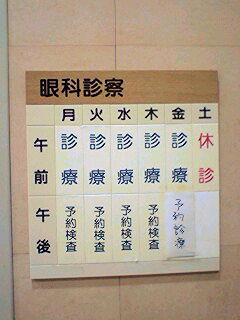 眼科診察
月 火 水 木 金 土
午前 診療 診療 診療 診療 診療 休診
午後 予約検査 予約検査 予約検査 予約検査 予約診療